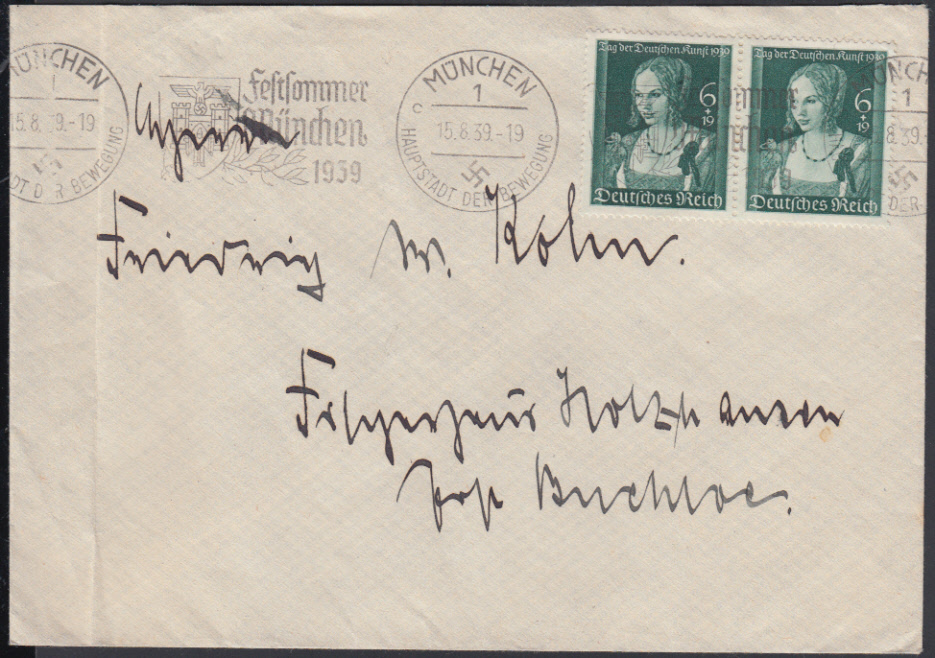 MÜNCHEN
1
15.8.39.-19
HAUPTSTADT DER BEWEGUNG
Festsommer
München
1939
MÜNCHEN
1
15.8.39.-19
c
HAUPTSTADT DER BEWEGUNG
Tag der Deutschen Kunst 1939
6
+
19
Deutsches Reich
Tag der Deutschen Kunst 1939
6
+
19
Deutsches Reich
MÜNCHEN
1
8.39.
DER
W. Kolm.
Holzhausen
Post Buchloe.